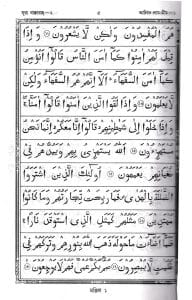 সূরা বাকারাহ্—২ ৫ আলিফ লাম-মীম—১
هُمُ الْمُفْسِدُوْنَ وَلٰكِنْ لَّا يَشْعُرُوْنَ ۝ وَاِذَا
قِيْلَ لَهُمْ اٰمِنُوْا كَمَآ اٰمَنَ النَّاسُ قَالُوْٓا اَنُؤْمِنُ
كَمَآ اٰمَنَ السُّفَهَآءُ ؕ اَلَآ اِنَّهُمْ هُمُ السُّفَهَآءُ وَلٰكِنْ
لَّا يَعْلَمُوْنَ ۝ وَاِذَا لَقُوا الَّذِيْنَ اٰمَنُوْا قَالُوْٓا اٰمَنَّا ۖ
وَاِذَا خَلَوْا اِلٰى شَيٰطِيْنِهِمْ ۙ قَالُوْٓا اِنَّا مَعَكُمْ ۙ اِنَّمَا
نَحْنُ مُسْتَهْزِءُوْنَ ۝ اَللّٰهُ يَسْتَهْزِئُ بِهِمْ وَيَمُدُّهُمْ فِيْ
طُغْيَانِهِمْ يَعْمَهُوْنَ ۝ اُولٰٓئِكَ الَّذِيْنَ اشْتَرَوُا
الضَّلٰلَةَ بِالْهُدٰى ۪ فَمَا رَبِحَتْ تِّجَارَتُهُمْ وَمَا كَانُوْا
مُهْتَدِيْنَ ۝ مَثَلُهُمْ كَمَثَلِ الَّذِى اسْتَوْقَدَ نَارًا ۚ
فَلَمَّآ اَضَآءَتْ مَا حَوْلَهٗ ذَهَبَ اللّٰهُ بِنُوْرِهِمْ وَتَرَكَهُمْ فِيْ
ظُلُمٰتٍ لَّا يُبْصِرُوْنَ ۝ صُمٌّۢ بُكْمٌ عُمْيٌ فَهُمْ لَا يَرْجِعُوْنَ ۝
মঞ্জিল ১